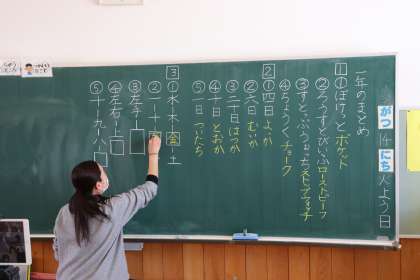 がつ
14
にち
よう日
一年のまとめ
1
①ぽけっと ポケット
②ろうすとびいふ ローストビーフ
③すとっぷうぉっち ストップウォッチ
④ちょうく チョーク
2
①四日 よっか
②六日 むいか
③二十日 はつか
④十日 とおか
⑤一日 ついたち
3
①水-木-金-土
②一-十-
③左手-
④左右-上
⑤十-九-八-